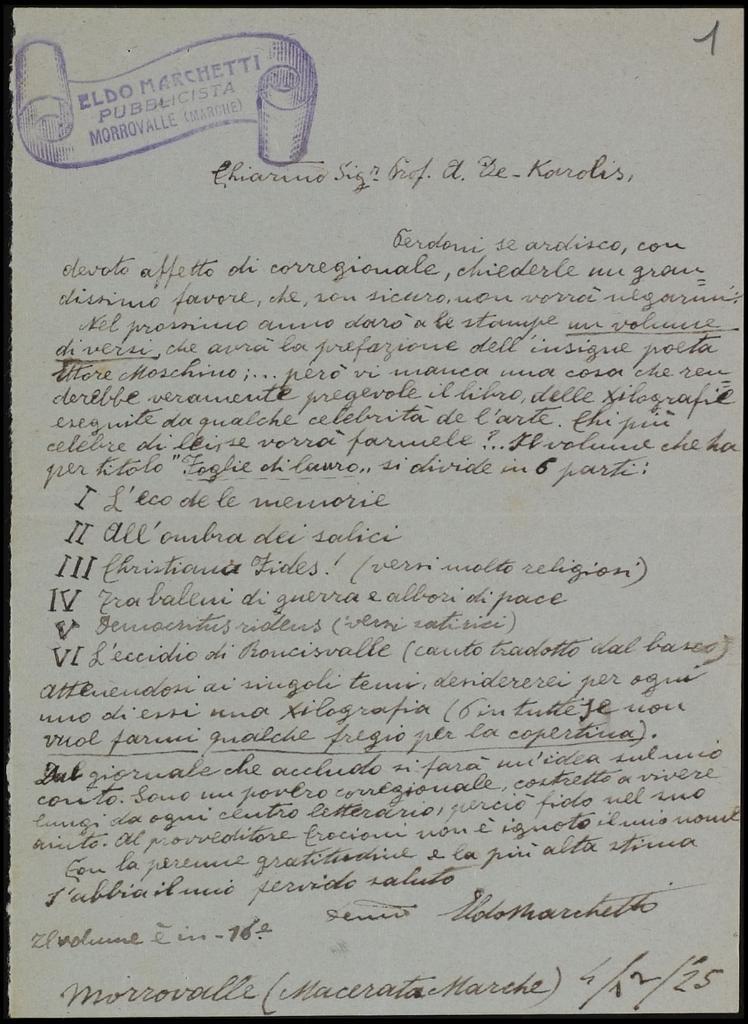 1
ELDO MARCHETTI
PUBBLICISTA
MORROVALLE (MARCHE)
Chiarmo Sigr Prof. A. De-Karolis,
Perdoni se ardisco, con
devoto affetto di corregionale, chiederle un gran=
dissimo favore, che, son sicuro, non vorrà negarmi:
Nel prossimo anno darò a le stampe un volume
di versi, che avrà la prefazione dell'insigne poeta
Ettore Moschino;... però vi manca una cosa che ren=
derebbe veramente pregevole il libro, delle xilografie
eseguite da qualche celebrità de l'arte. Chi più
celebre di lei, se vorrà farmele?.. Il volume che ha
per titolo "Foglie di lauro,, si divide in 6 parti:
I L'eco de le memorie
II All'ombra dei salici
III Christiana Fides! (versi molto religiosi)
IV Tra baleni di guerra e albori di pace
V Democritus ridens (versi satirici)
VI L'eccidio di Roncisvalle (canto tradotto dal basco)
Attenendosi ai singoli temi, desidererei per ogni
uno di essi una xilografia (6 in tutte) se non
vuol farmi qualche fregio per la copertina).
Dal giornale che accludo si farà un'idea sul mio
conto. Sono un povero corregionale, costretto a vivere
lungi da ogni centro letterario, perciò fido nel suo
aiuto. Al provveditore Crocioni non è ignoto il mio nome
Con la perenne gratitudine e la più alta stima
s'abbia il mio fervido saluto
Eldo Marchetti
Il volume è in-16º
Morrovalle (Macerata Marche) 4/12/25